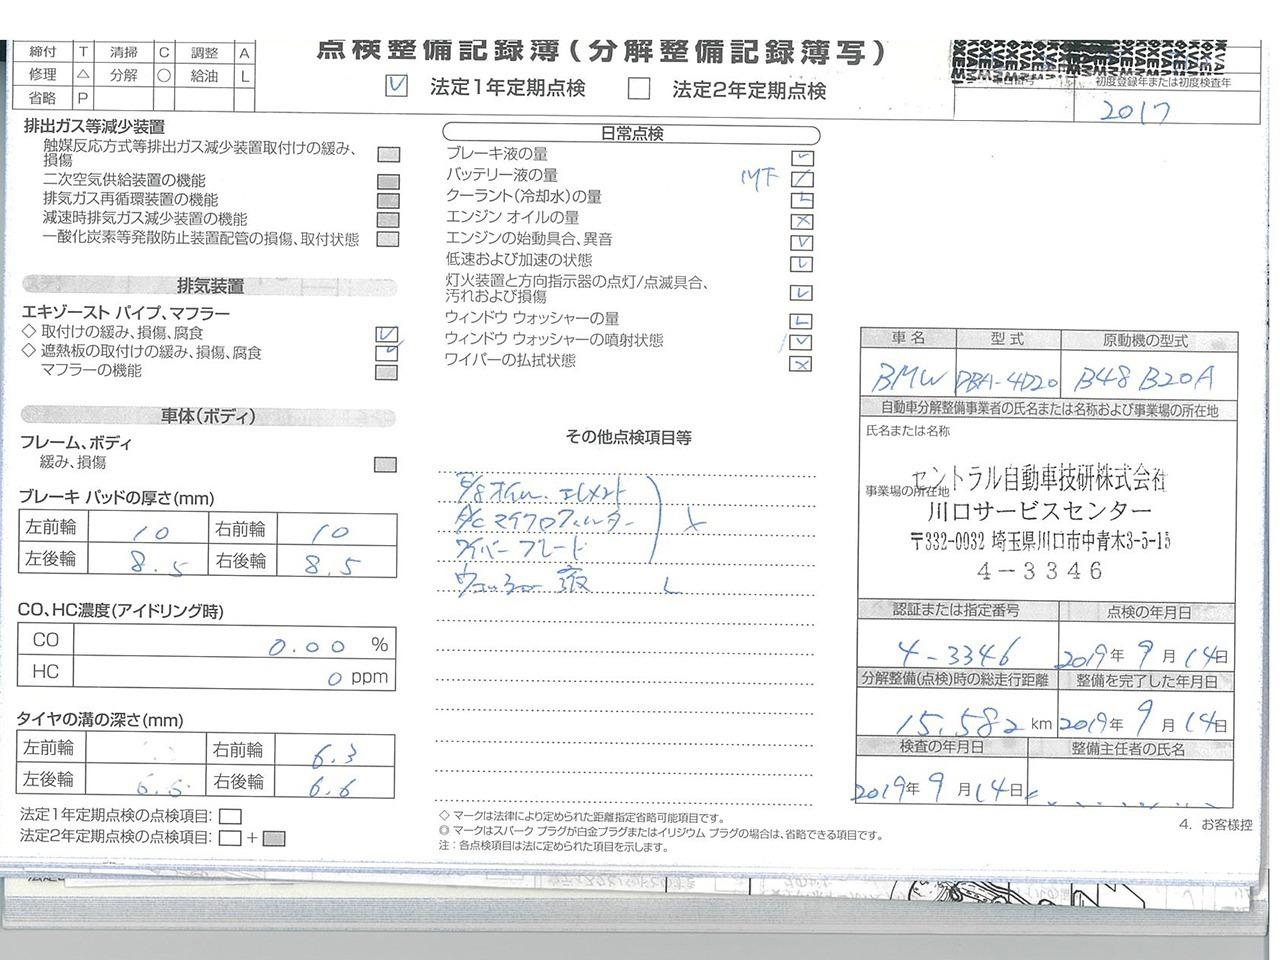 点検整備記録簿(分解整備記録簿写)
締付 T 清掃 C 調整 A
修理 △ 分解 ○ 給油 L
省略 P
法定1年定期点検
法定2年定期点検
初度登録年または初度検査年
2017
排出ガス等減少装置
触媒反応方式等排出ガス減少装置取付けの緩み、
損傷
二次空気供給装置の機能
排気ガス再循環装置の機能
減速時排気ガス減少装置の機能
一酸化炭素等発散防止装置配管の損傷、取付状態
排気装置
エキゾースト パイプ、マフラー
◇ 取付けの緩み、損傷、腐食
◇ 遮熱板の取付けの緩み、損傷、腐食
マフラーの機能
車体(ボディ)
フレーム、ボディ
緩み、損傷
ブレーキ パッドの厚さ(mm)
左前輪 10 右前輪 10
左後輪 8.5 右後輪 8.5
CO、HC濃度(アイドリング時)
CO 0.00 %
HC 0 ppm
タイヤの溝の深さ(mm)
左前輪 右前輪 6.3
左後輪 6.6 右後輪 6.6
法定1年定期点検の点検項目:
法定2年定期点検の点検項目: +
日常点検
ブレーキ液の量
バッテリー液の量 MF
クーラント(冷却水)の量 L
エンジン オイルの量
エンジンの始動具合、異音
低速および加速の状態
灯火装置と方向指示器の点灯/点滅具合、
汚れおよび損傷
ウィンドウ ウォッシャーの量 L
ウィンドウ ウォッシャーの噴射状態
ワイパーの払拭状態
その他点検項目等
E/gオイル、エレメント
A/Cマイクロフィルター ×
ワイパーブレード
ウォッシャー液 L
◇ マークは法律により定められた距離指定省略可能項目です。
◎ マークはスパーク プラグが白金プラグまたはイリジウム プラグの場合は、省略できる項目です。
注: 各点検項目は法に定められた項目を示します。
車名 型式 原動機の型式
BMW DBA-4D20 B48B20A
自動車分解整備事業者の氏名または名称および事業場の所在地
氏名または名称
事業場の所在地
セントラル自動車技研株式会社
川口サービスセンター
〒332-0032 埼玉県川口市中青木3-5-15
4-3346
認証または指定番号 点検の年月日
4-3346 2019年9月14日
分解整備(点検)時の総走行距離 整備を完了した年月日
15,582 km 2019年9月14日
検査の年月日 整備主任者の氏名
2019年9月14日
4. お客様控